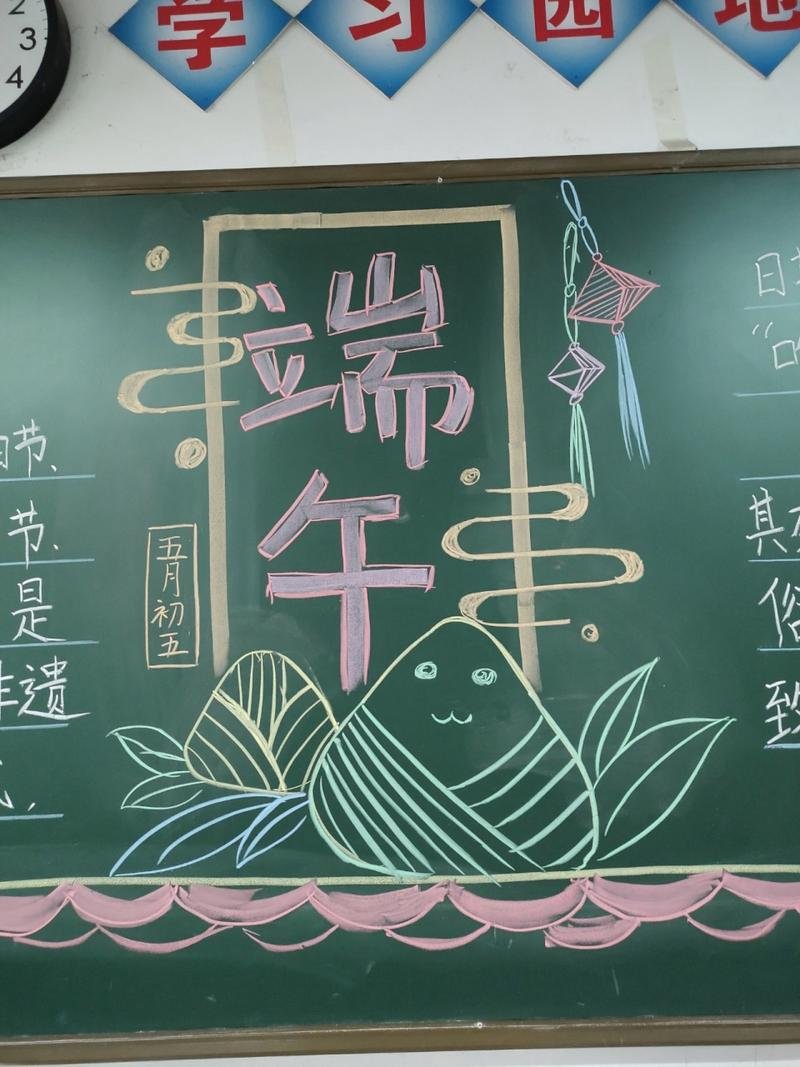 2
3
4
学习园地
端午
五月初五
节、
节、
是
非遗
日
其
俗
致